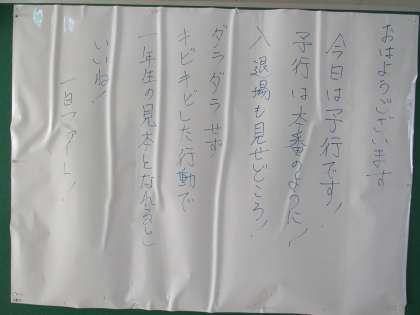 おはようございます
今日は予行です!
予行は本番のように!
入退場も見せどころ!
ダラダラせず
キビキビした行動で
一年生の見本となれると
いいね!
一日ファイト!